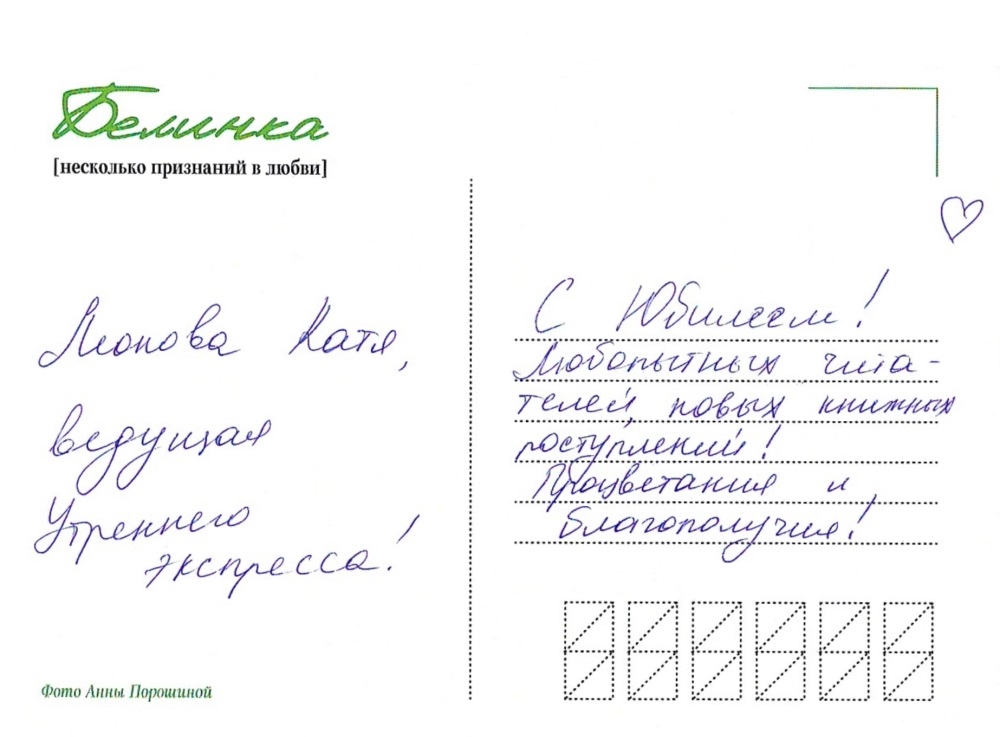 Белинка
[несколько признаний в любви]
Леонова Катя,
ведущая
Утреннего
экспресса!
Фото Анны Порошиной
С Юбилеем!
Любопытных чита-
телей, новых книжных
поступлений!
Процветания и
благополучия!